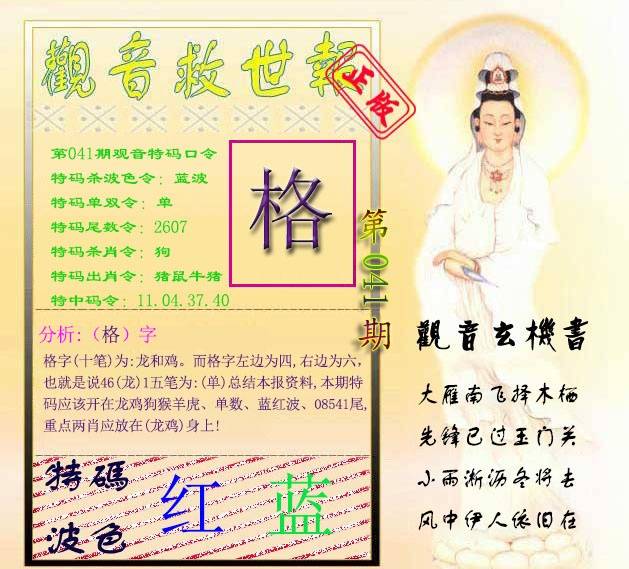 觀音救世報
正版
第041期观音特码口令
特码杀波色令：蓝波
特码单双令：单
特码尾数令：2607
特码杀肖令：狗
特码出肖令：猪鼠牛猪
特中码令：11.04.37.40
格
第041期
分析:（格）字
格字(十笔)为:龙和鸡。而格字左边为四,右边为六,
也就是说46(龙)1五笔为:(单)总结本报资料,本期特
码应该开在龙鸡狗猴羊虎、单数、蓝红波、08541尾,
重点两肖应放在(龙鸡)身上!
特碼
波色
红 蓝
觀音玄機書
大雁南飞择木栖
先锋已过玉门关
小雨淅沥冬将去
风中伊人依旧在